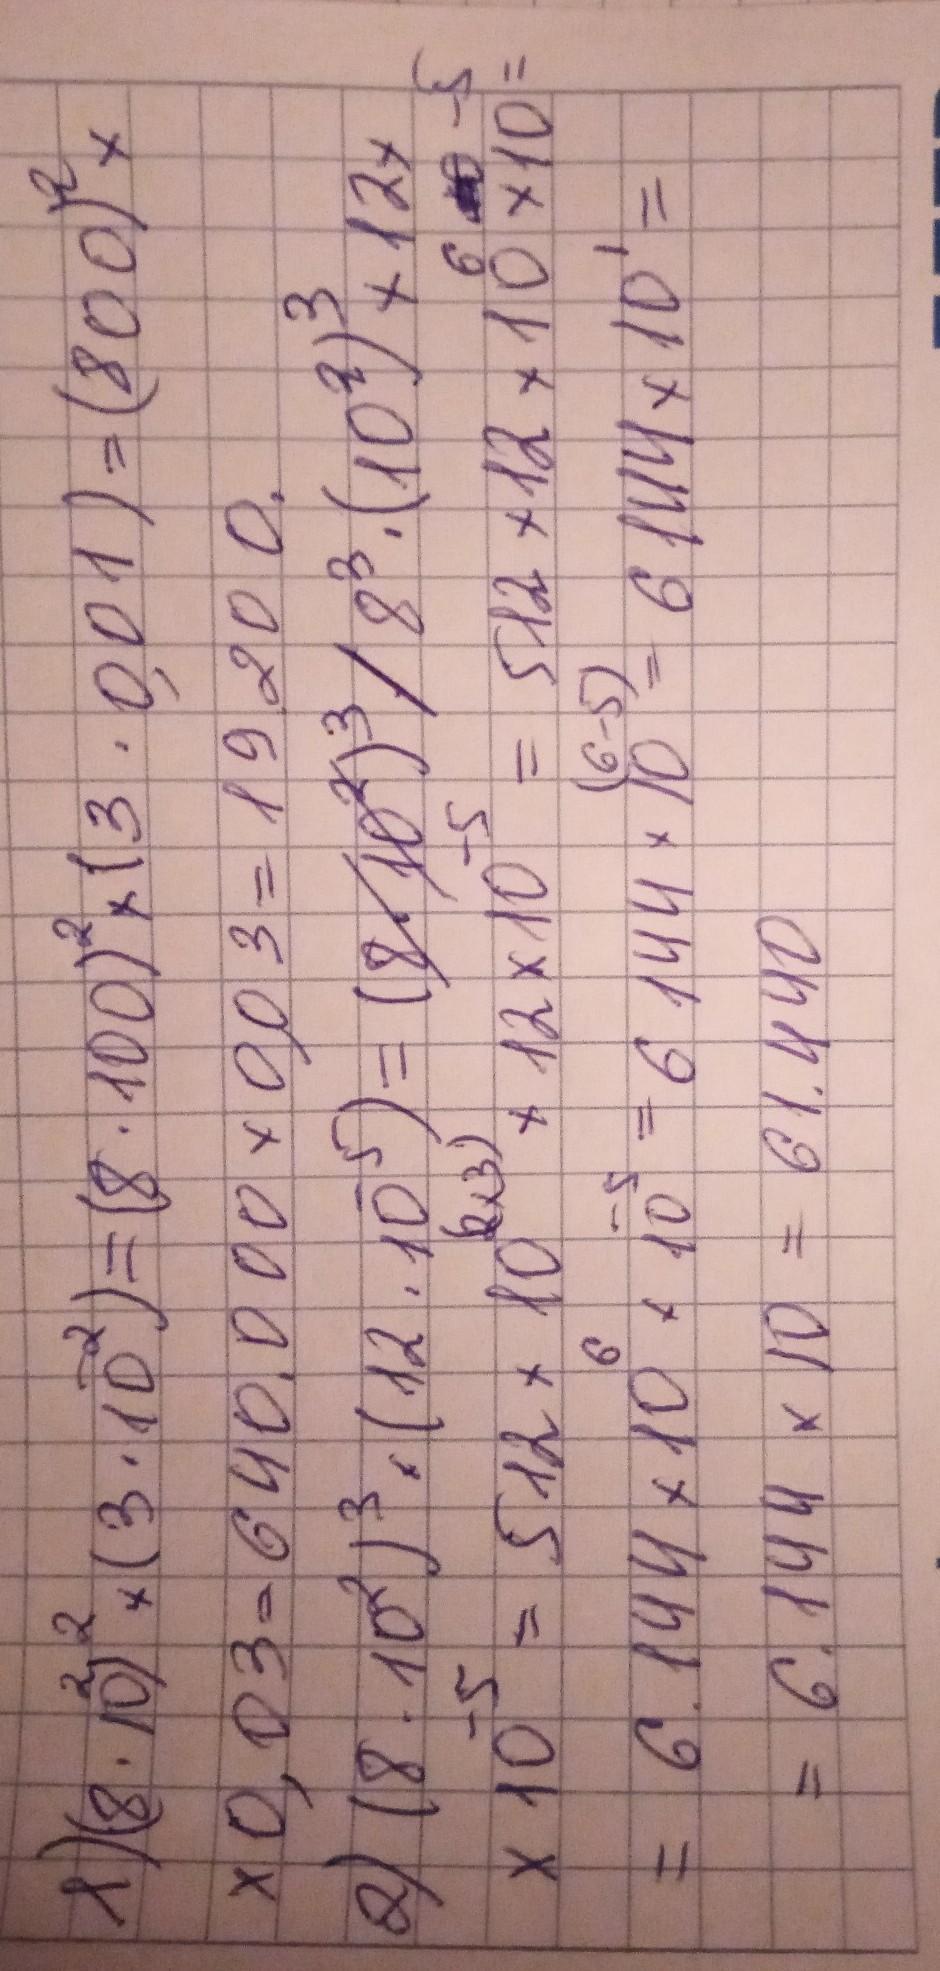 1) (8 · 10²)² × (3 · 10⁻²) = (8 · 100)² × (3 · 0,01) = (800)² ×
× 0,03 = 640.000 × 0,03 = 19.200.
2) (8 · 10²)³ · (12 · 10⁻⁵) = (8 · 10²)³ / 8³ · (10²)³ × 12 ×
× 10⁻⁵ = 512 × 10⁽²ˣ³⁾ × 12 × 10⁻⁵ = 512 × 12 × 10⁶ × 10⁻⁵ =
= 6.144 × 10⁶ × 10⁻⁵ = 6 144 × 10⁽⁶⁻⁵⁾ = 6 144 × 10¹ =
= 6.144 × 10 = 61.440